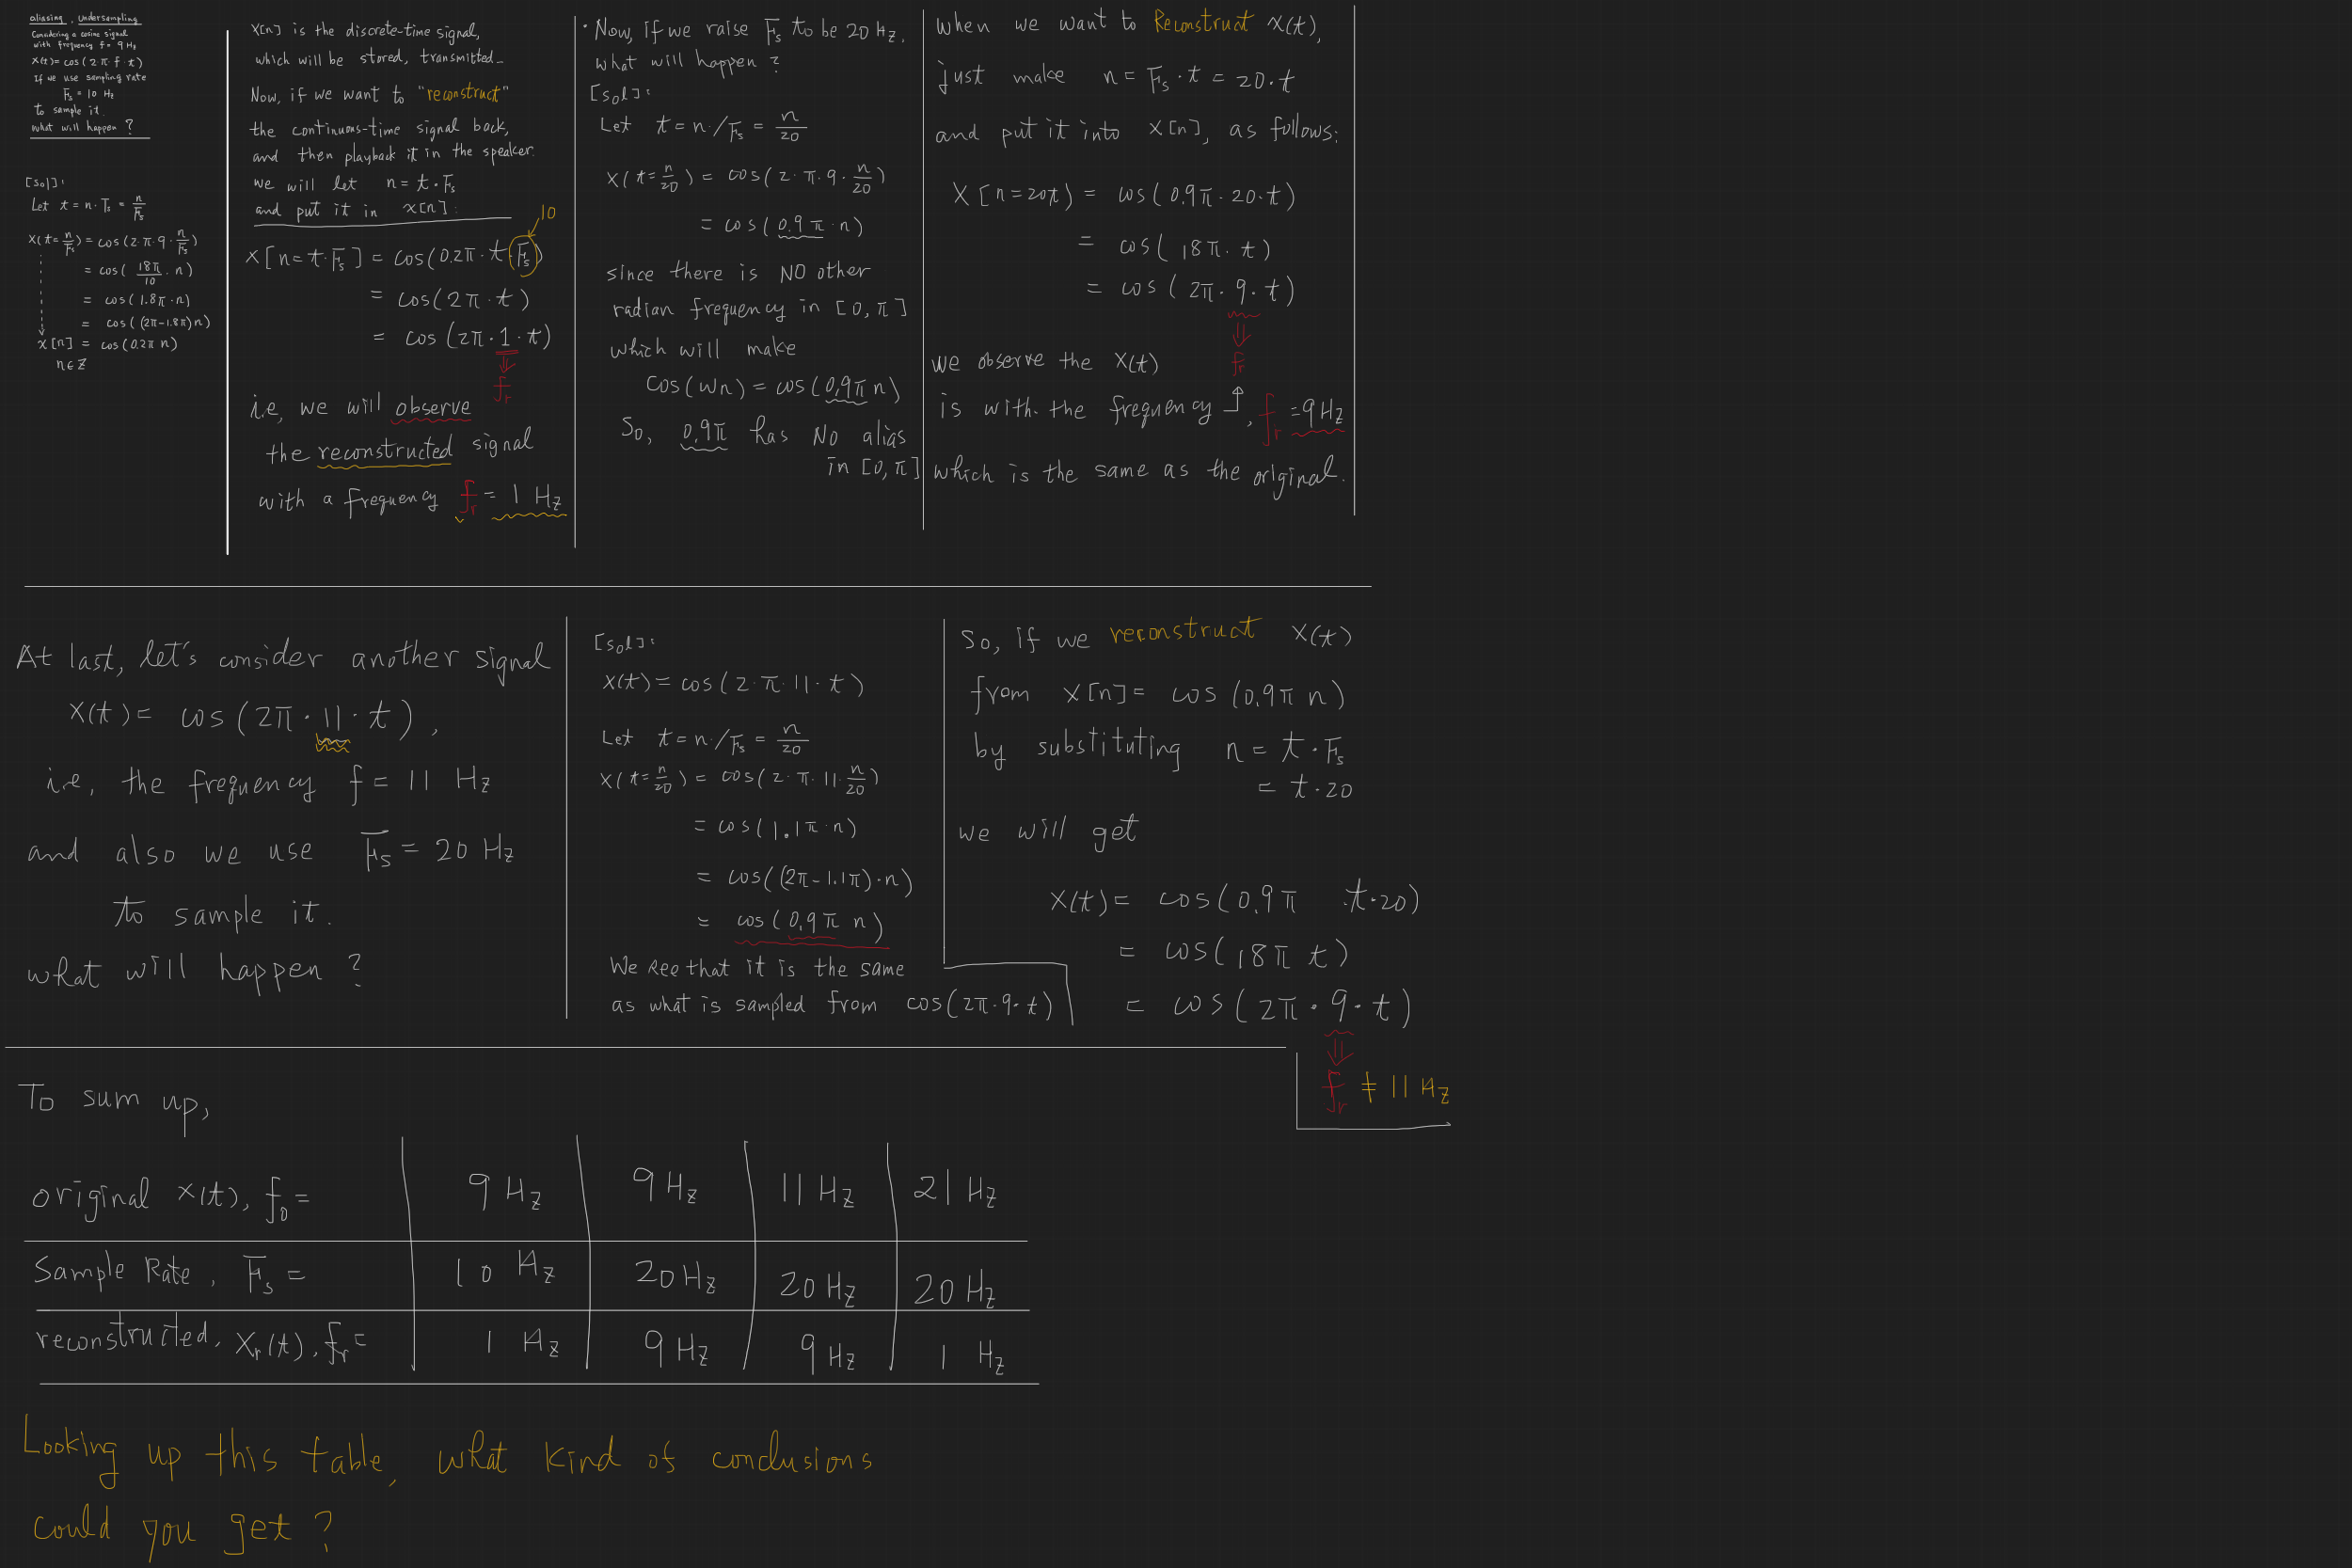 aliasing, Undersampling
Considering a cosine signal
with frequency f = 9 Hz
X(t) = cos(2·π·f·t)
If we use sampling rate
Fs = 10 Hz
to sample it.
what will happen?
[Sol]:
Let t = n·Ts = n/Fs
X(t=n/Fs) = cos(2·π·9·n/Fs)
= cos(18π/10·n)
= cos(1.8π·n)
= cos((2π-1.8π)n)
x[n] = cos(0.2π n)
n∈Z
X[n] is the discrete-time signal,
which will be stored, transmitted...
Now, if we want to "reconstruct"
the continuous-time signal back,
and then playback it in the speaker.
we will let n = t·Fs
and put it in x[n]:
10
X[n=t·Fs] = cos(0.2π·t·Fs)
= cos(2π·t)
= cos(2π·1·t)
⇓
fr
i.e, we will observe
the reconstructed signal
with a frequency fr = 1 Hz
· Now, if we raise Fs to be 20 Hz,
what will happen?
[Sol]:
Let t = n·/Fs = n/20
X(t=n/20) = cos(2·π·9·n/20)
= cos(0.9π·n)
since there is NO other
radian frequency in [0,π]
which will make
Cos(ωn) = cos(0.9π n)
So, 0.9π has NO alias
in [0,π]
When we want to Reconstruct X(t),
just make n = Fs·t = 20·t
and put it into X[n], as follows:
X[n=20t] = cos(0.9π·20·t)
= cos(18π·t)
= cos(2π·9·t)
⇓
fr
we observe the X(t)
is with the frequency ↑, fr = 9Hz
which is the same as the original.
At last, let's consider another signal
X(t) = cos(2π·11·t),
i.e, the frequency f = 11 Hz
and also we use Fs = 20 Hz
to sample it.
what will happen?
[Sol]:
X(t) = cos(2·π·11·t)
Let t = n·/Fs = n/20
X(t=n/20) = cos(2·π·11·n/20)
= cos(1.1π·n)
= cos((2π-1.1π)·n)
= cos(0.9π n)
We see that it is the same
as what is sampled from cos(2π·9·t)
So, if we reconstruct X(t)
from X[n] = cos(0.9π n)
by substituting n = t·Fs
= t·20
we will get
X(t) = cos(0.9π ·t·20)
= cos(18π t)
= cos(2π·9·t)
⇓
fr ≠ 11 Hz
To sum up,
original X(t), f0 = 9 Hz 9 Hz 11 Hz 21 Hz
Sample Rate, Fs = 10 Hz 20 Hz 20 Hz 20 Hz
reconstructed, Xr(t), fr = 1 Hz 9 Hz 9 Hz 1 Hz
Looking up this table, what kind of conclusions
could you get?